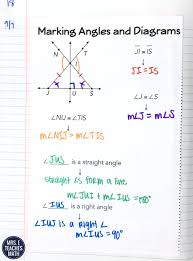 Marking Angles and Diagrams
N
T
I
J
U
S
JI = IS
JI = IS
∠J = ∠S
m∠J = m∠S
∠NIJ = ∠TIS
m∠NIJ = m∠TIS
∠ JUS is a straight angle
straight ∠s form a line
m∠JUI + m∠IUS = 180°
∠ IUS is a right angle
∠IUJ is a right ∠
m∠IUS = 90°
MRS. E
TEACHES
MATH